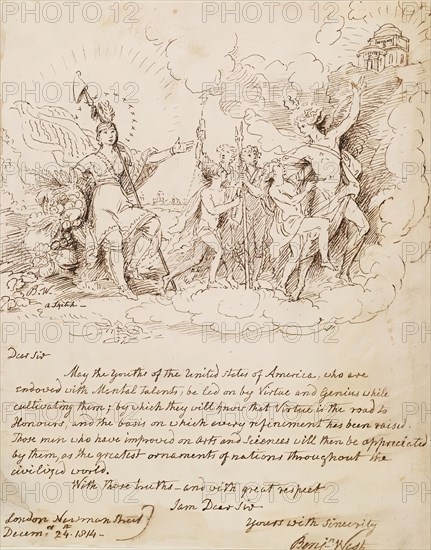 B. W.
a Sketch.
Dear Sir
May the Youths of the United States of America, who are
endowed with Mental talents, be led on by Virtue and Genius while
cultivating them; by which they will know that Virtue is the road to
Honours, and the basis on which every refinement has been raised.
Those men who have improved on arts and sciences will then be appreciated
by them, as the greatest ornaments of nations throughout the
civilized world.
With those truths - and with great respect
I am Dear Sir
Yours with Sincerity
Benjn West
London Newman Street
Decemr 24th 1814 -